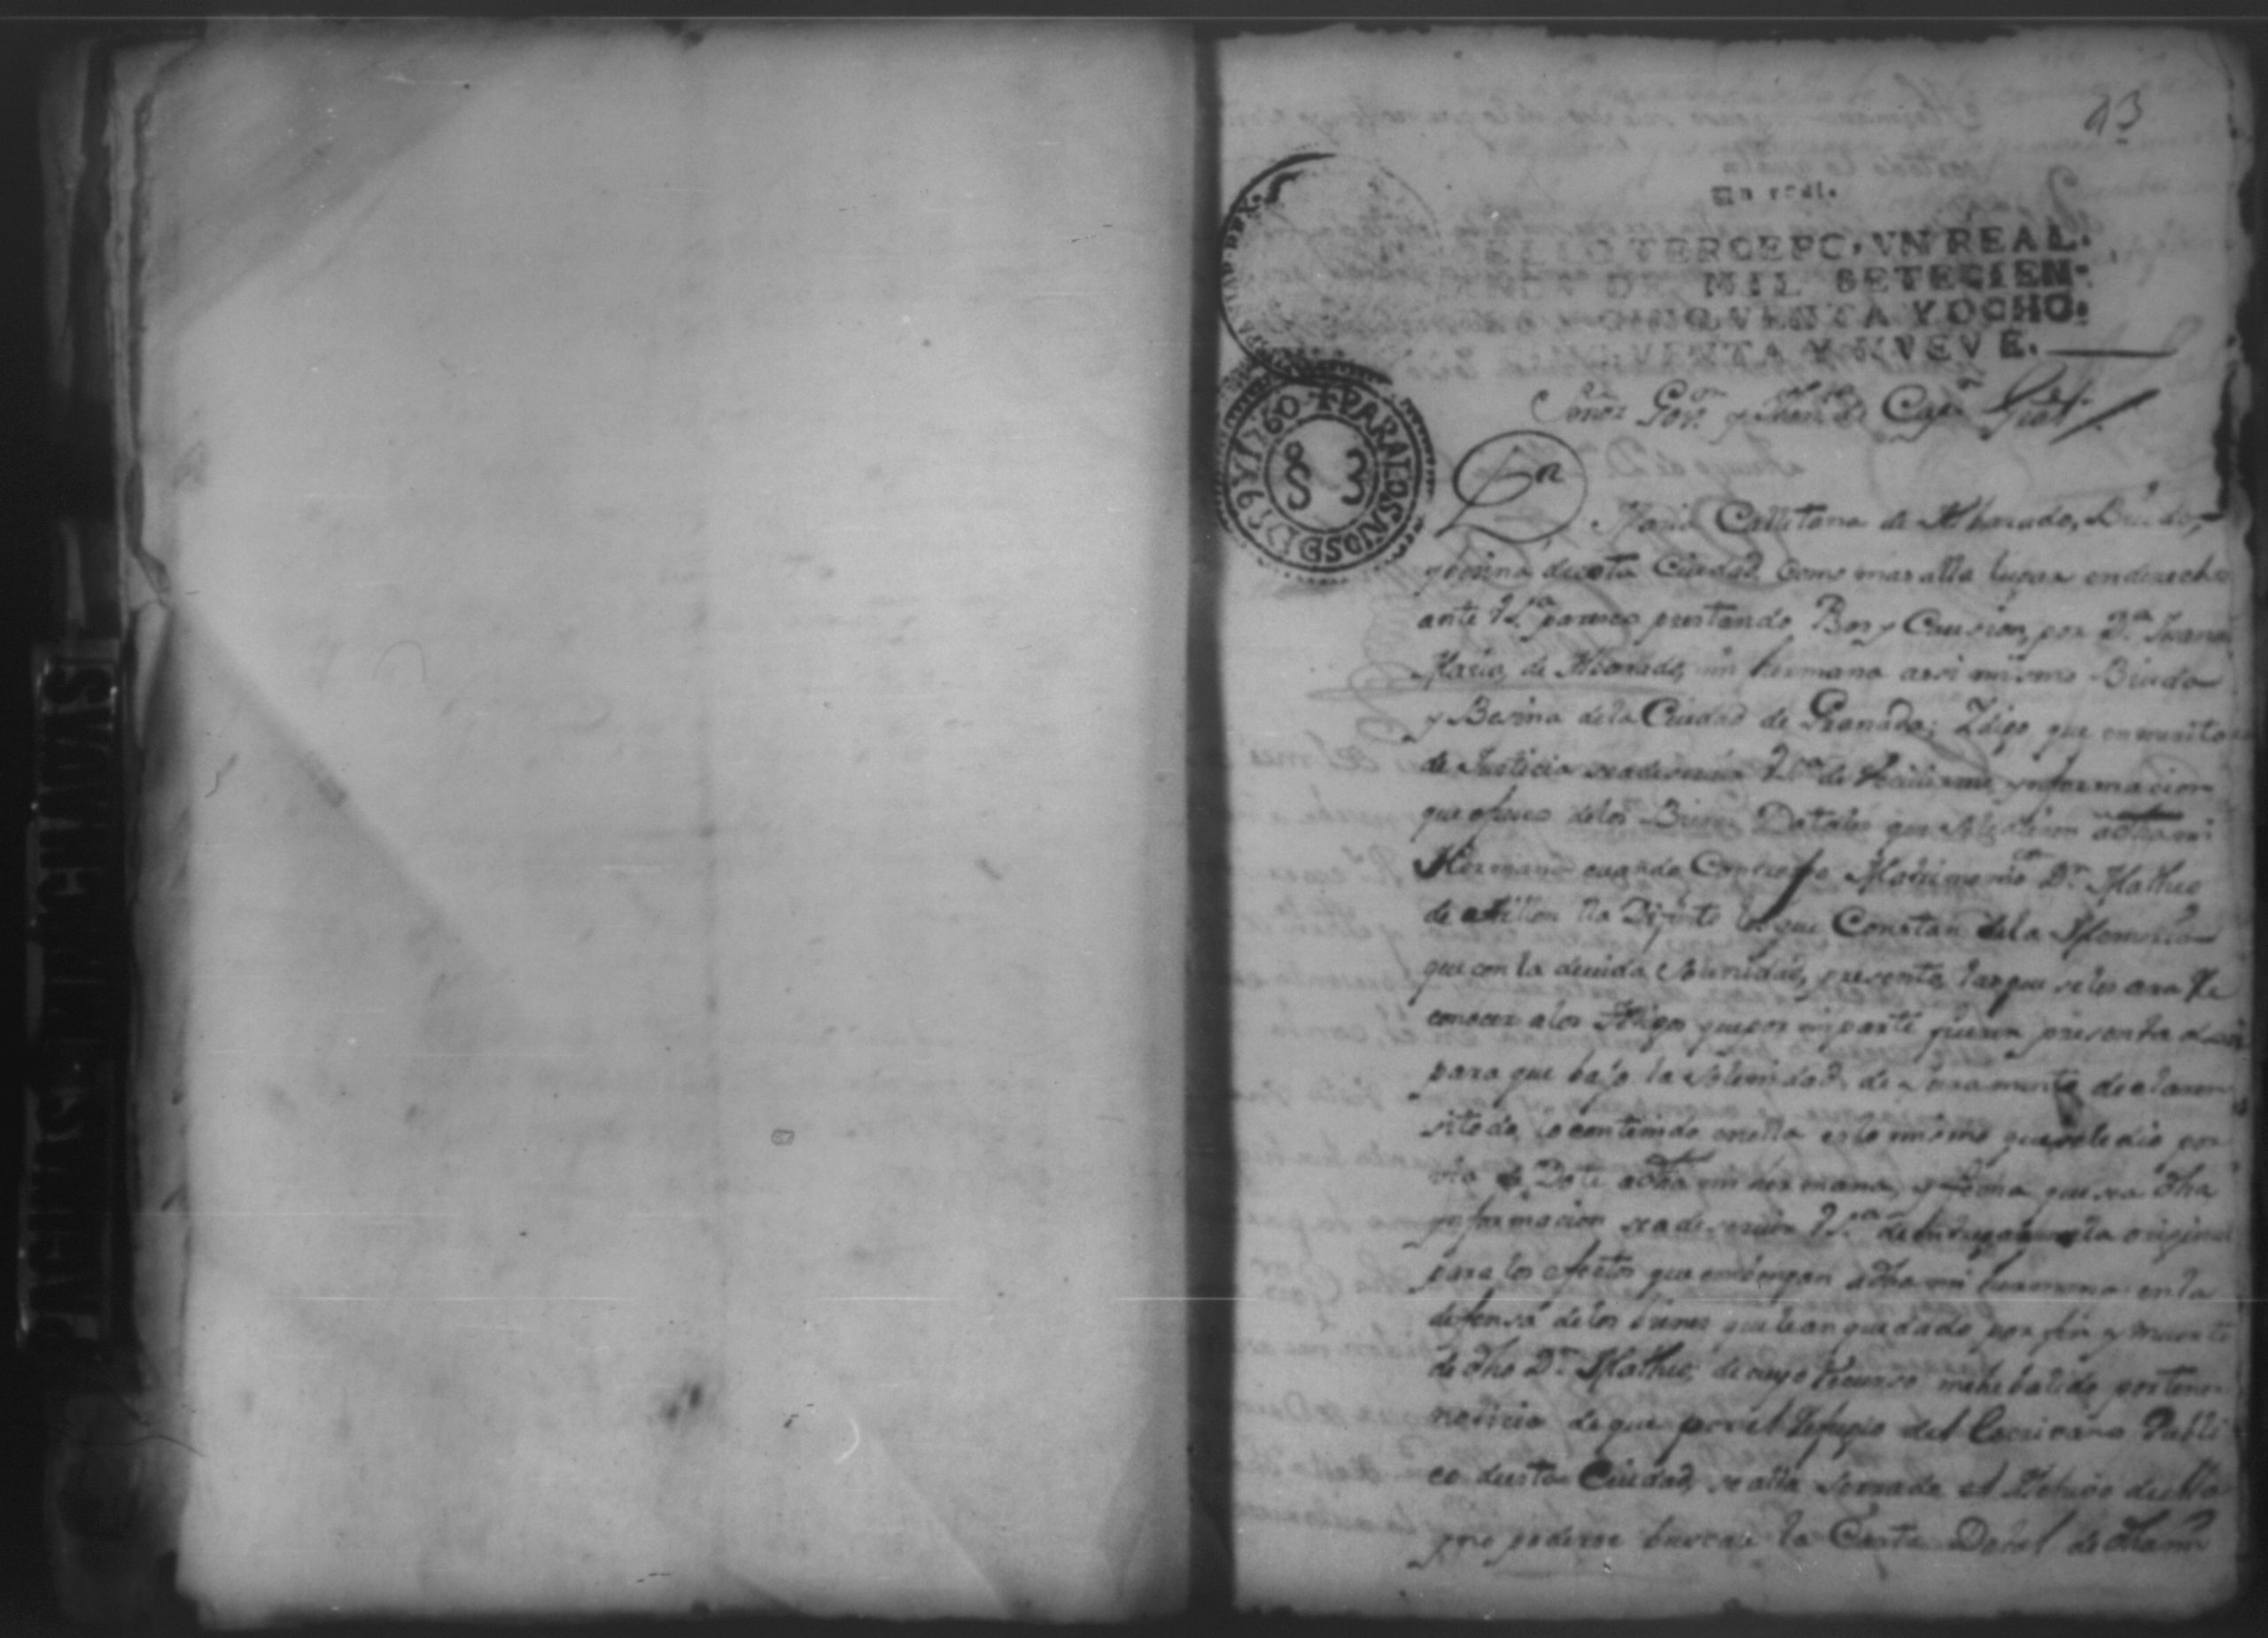 43
Un real.
SELLO TERCERO, VN REAL.
AÑOS DE MIL SETECIEN-
CINQVENTA Y OCHO.
CINQVENTA Y NVEVE.
PARA LOS AÑOS DE 1759 Y 1760
S 3
Señor Gov.or y Then.te de Cap.n Gral.
Dn
Maria Calletana de Albarado, Biuda,
y besina de esta Ciudad como mas alla lugar en derecho
ante VSa paresco prestando Bos y Causion, por Da. Juana
Maria de Albarado, mi hermana assi mismo Biuda
y Besina de la Ciudad de Granada; Y digo que en merito
de Justicia se ade servir VSa de Recivirme ynformacion
que ofresco de los Bienes Dotales que se le dieron a dha mi
Hermana cuando Contrajo Matrimonio Dn Matheo
de la Difunto los que Constan de la Memoria
que con la devida solemnidad, presento, la que se les ara Re
conocer a los testigos que por mi parte fueren presentados
para que bajo la solemnidad de Juramento declaren
si todo lo contenido en ella es lo mismo que se le dio por
via de Dote a dha mi hermana, y fecha que sea dha
ynformacion se ade servir VSa de entregarmela original
para los efectos que combengan a dha mi hermana en la
defensa de los bienes que le an quedado por fin y muerte
de dho Dn Matheo, de cuyo Recurso me he balido por tener
noticia de que por el Refugio del Escrivano Publi
co de esta Ciudad, se alla serrado el
poderse buscar la Carta Dotal de dha mi